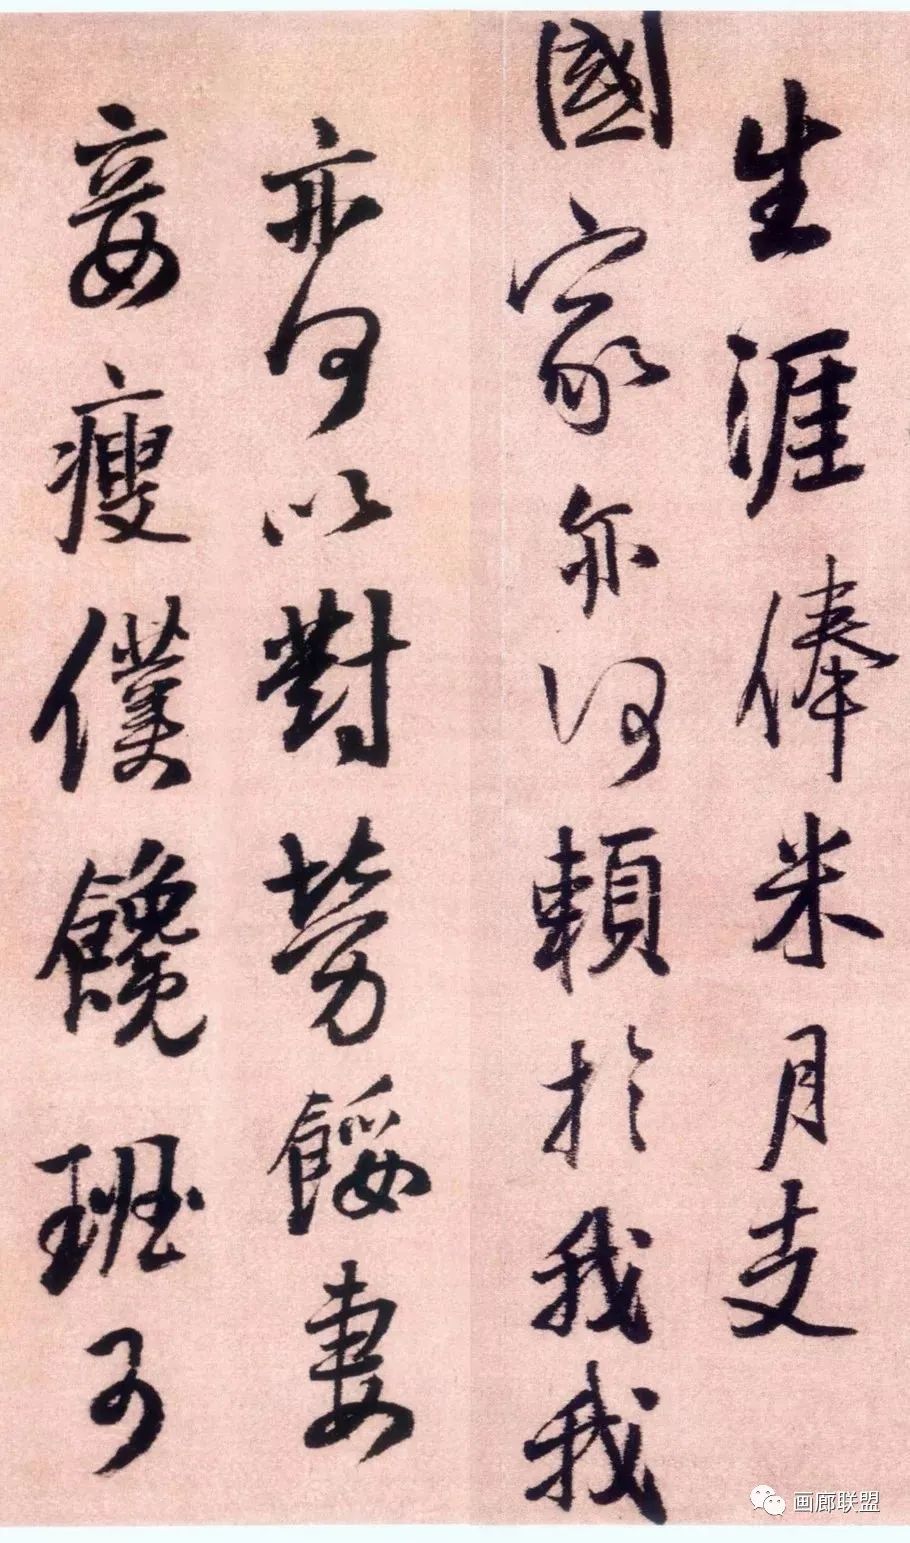 生涯俸米月支
國家亦何賴於我我
亦何以對勞餒妻
妾瘦僕饞班可
画廊联盟